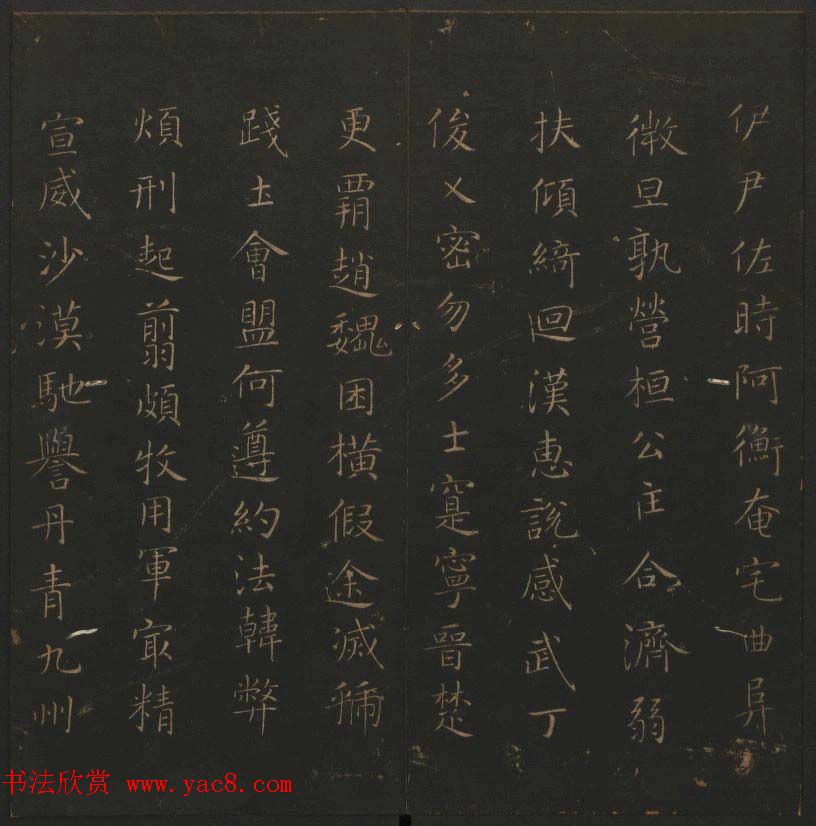 伊尹佐時阿衡奄宅曲阜
微旦孰營桓公匡合濟弱
扶傾綺迴漢惠說感武丁
俊乂密勿多士寔寧晉楚
更霸趙魏困橫假途滅虢
踐土會盟何遵約法韓弊
煩刑起翦頗牧用軍寂精
宣威沙漠馳譽丹青九州
书法欣赏 www.yac8.com